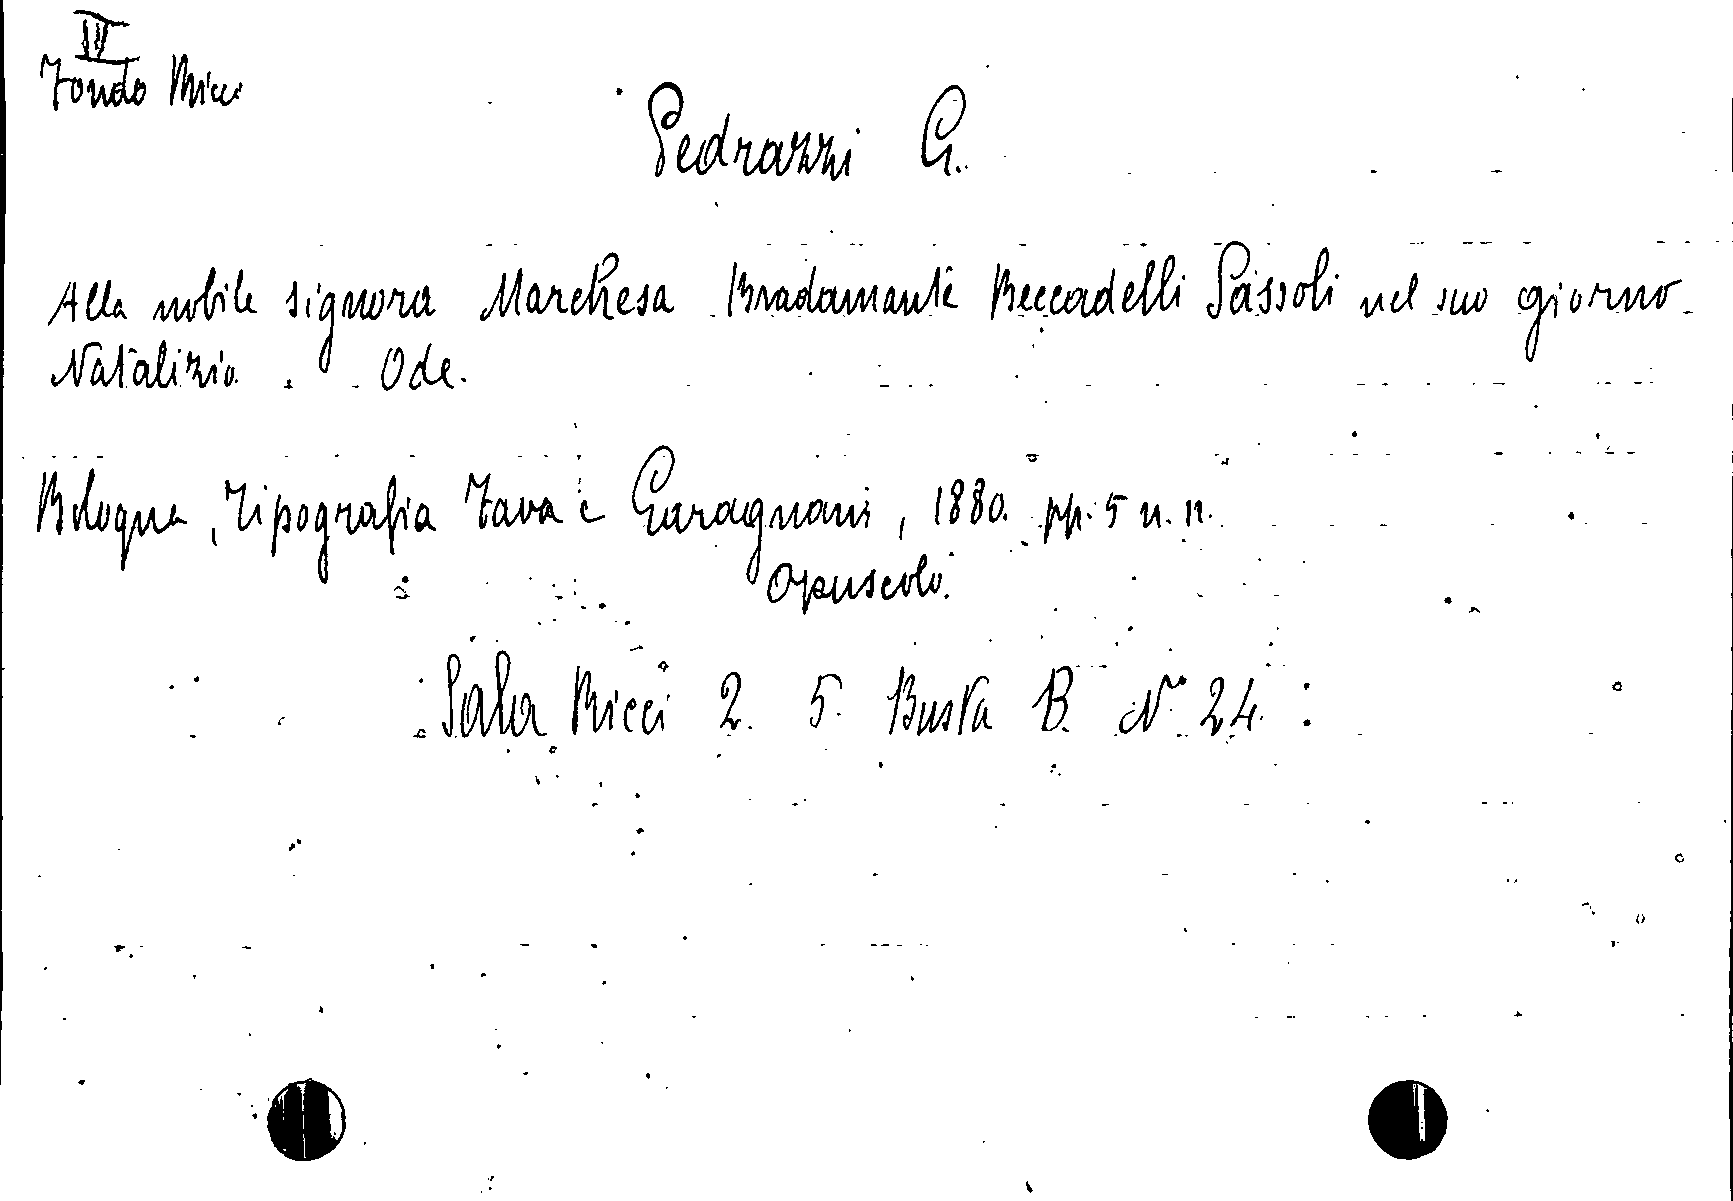 IV
Fondo Ricci
Pedrazzi G.
Alla nobile signora Marchesa Bradamante Beccadelli Passoli nel suo giorno
Natalizio. Ode.
Bologna, Tipografia Fava e Garagnani, 1880. pp. 5 n. n.
Opuscolo.
Sala Ricci 2. 5. Busta B. N° 24.